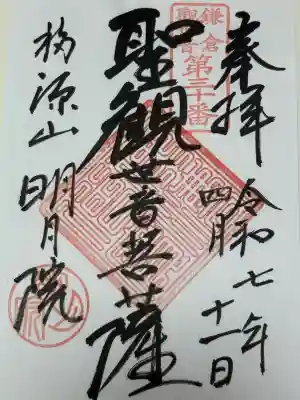 奉拝
令和七年
四月十一日
鎌倉
観音
第三十番
聖観世音菩薩
福源山
明月院